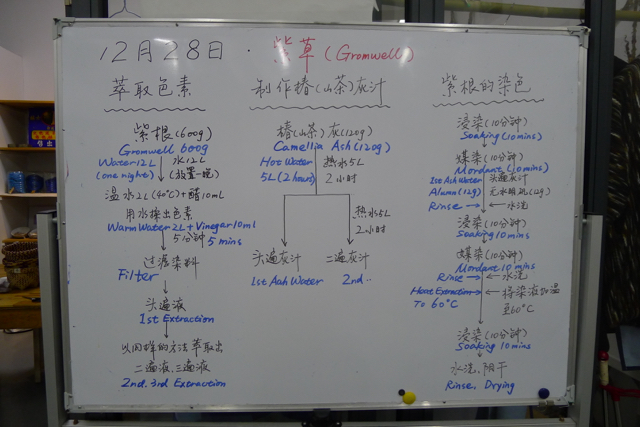 12月28日 · 紫草 (Gromwell)
萃取色素
紫根(600g)
Gromwell 600g
Water 12L 水12L
(one night) (放置一晚)
温水2L(40°C)+醋10ml
用水揉出色素
Warm Water 2L + Vinegar 10ml
5分钟 5 mins
过滤染料
Filter
头遍液
1st Extraction
以同样的方法萃取出
二遍液、三遍液
2nd. 3rd Extraction
制作椿(山茶)灰汁
椿(山茶)灰(120g)
Camellia Ash(120g)
Hot Water 热水5L
5L(2 hours) 2小时
热水5L
2小时
头遍灰汁 二遍灰汁
1st Aah Water 2nd..
紫根的染色
浸染(10分钟)
Soaking(10mins)
媒染(10分钟)
Mordant(10mins)
1st Ash Water 头遍灰汁
Alumn(12g) 无水明矾(12g)
Rinse 水洗
浸染(10分钟)
Soaking 10mins
媒染(10分钟)
Mordant 10mins
Rinse 水洗
Heat Extraction 将染液加温
To 60°C 至60°C
浸染(10分钟)
Soaking 10mins
水洗、阴干
Rinse, Drying